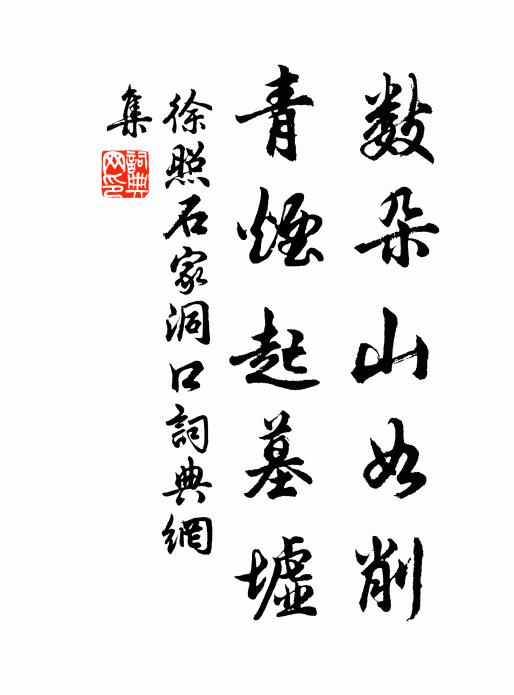 數朵山如削
青煙起墓墟
徐照石家洞口詞典網
集
詞典網